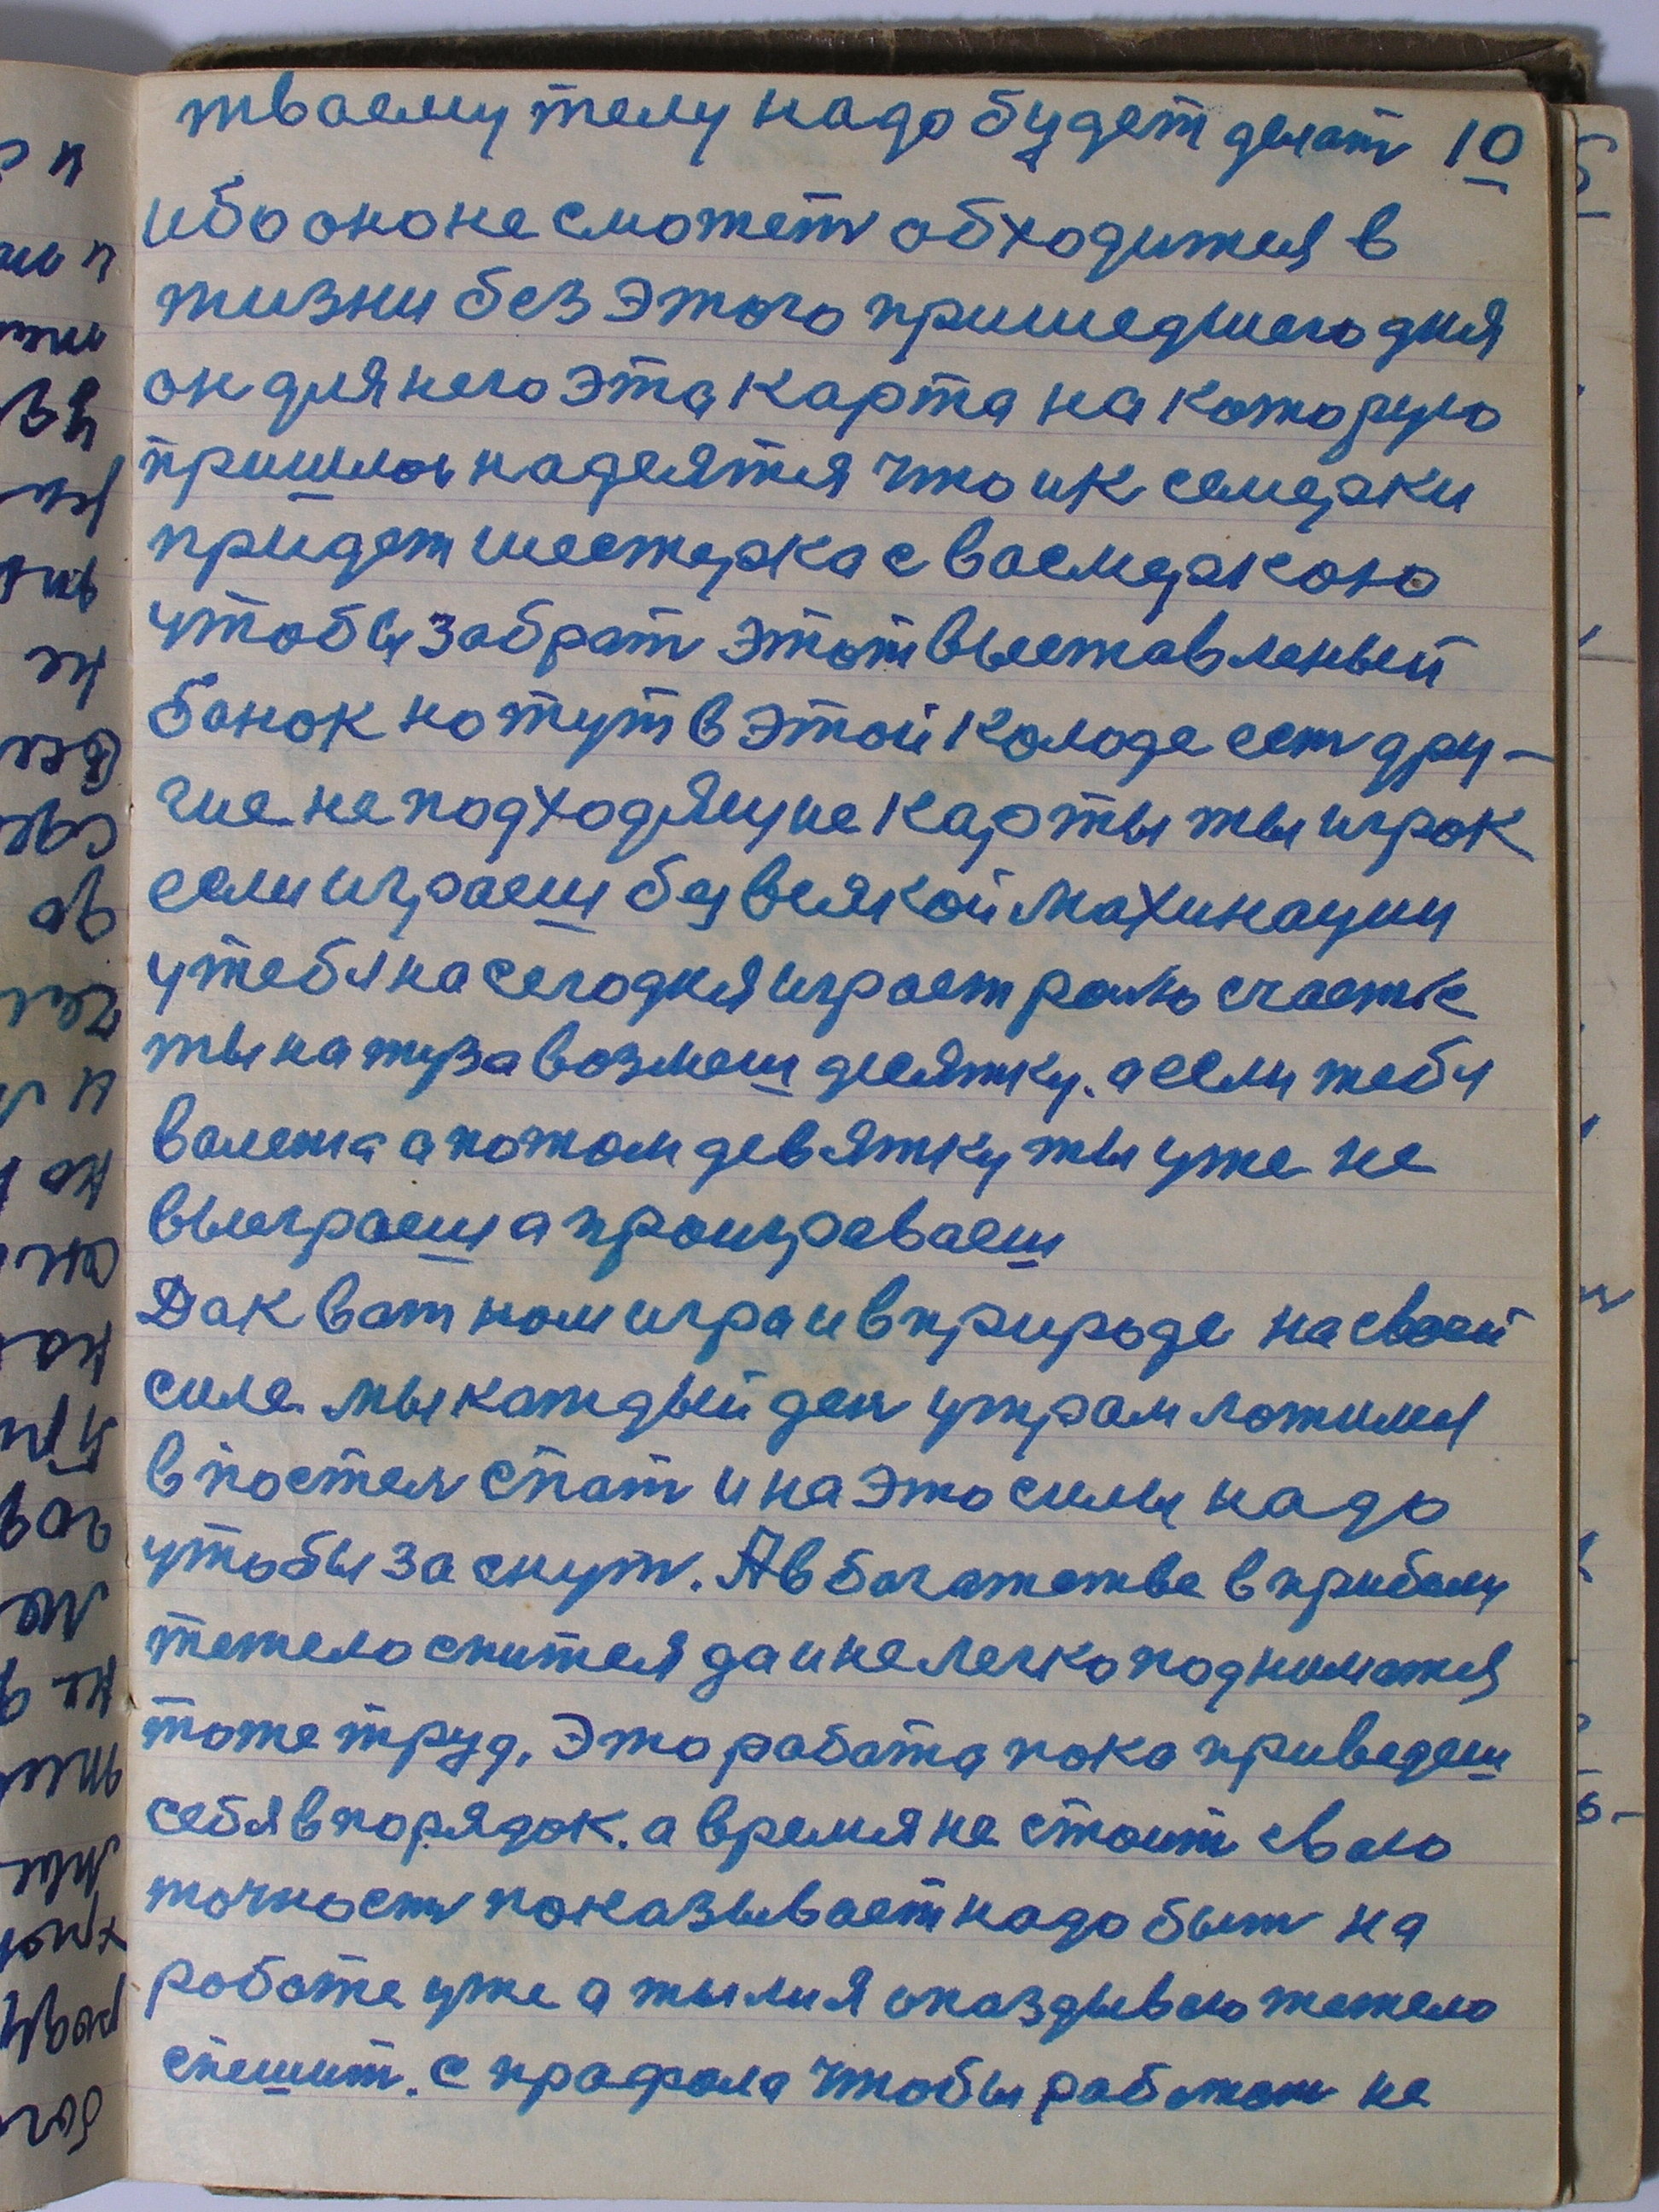 тваему телу надо будет делат 10
ибо оно не сможет обходится в
жизни без этого пришедшего дня
он для него эта карта на которую
пришлос надеятся что и к семерки
придет шестерка с васмеркою
чтобы забрат этот выставленый
банок но тут в этой колоде ест дру-
гие не подходящие карты ты игрок
если играеш без всякой махинации
у тебя на сегодня играет ролю счастье
ты на туза возмеш десятку. а если тебя
валета а потом девятку ты уже не
выеграеш а проигреваеш
Дак ват нам игра и в природе на своей
силе мы каждый ден утрам ложимся
в постел спат и на это силы надо
чтобы заснут. А в богатстве в прибыли
тежело спится да и не легко поднимается
тоже труд. Это работа пока приведеш
себя в порядок. а время не стоит сваю
точност показывает надо быт на
работе уже а ты или я опаздываю тежело
спешит. с прафола чтобы работат не